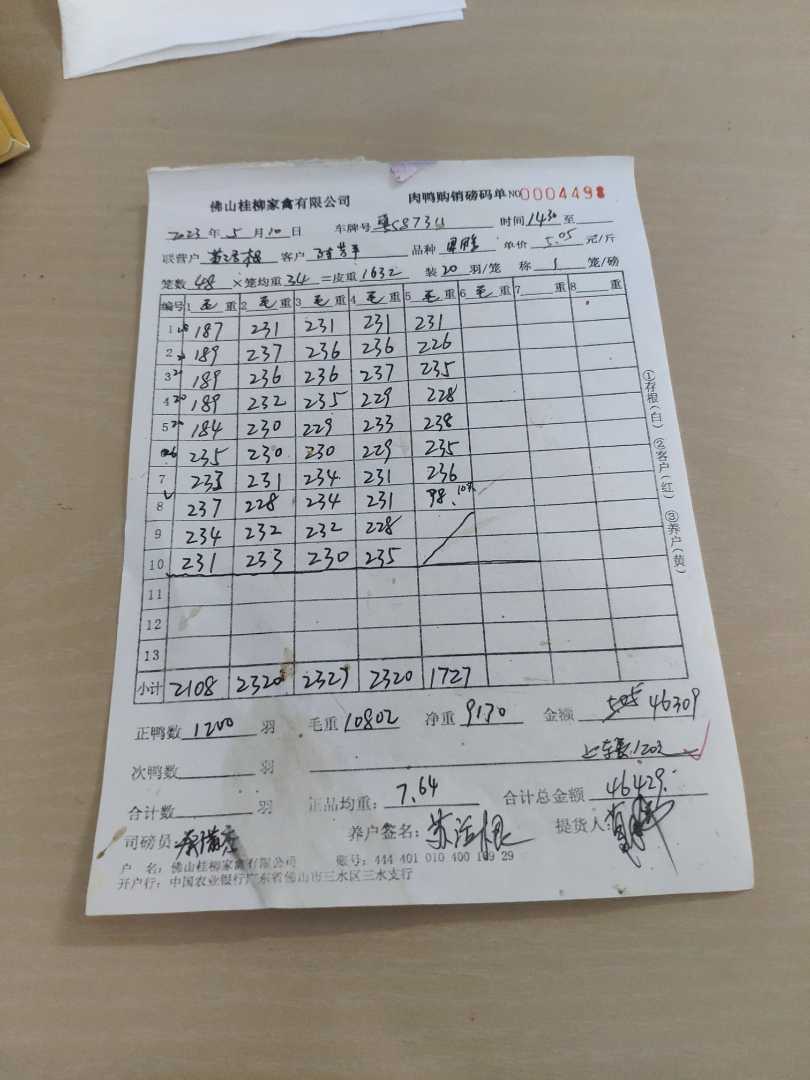 佛山桂柳家禽有限公司 肉鸭购销磅码单 NO 0004498
2023 年 5 月 10 日 车牌号 时间 1430 至
联营户 客户 品种 单价 5.05 元/斤
笼数 48 ×笼均重 34 =皮重 1632 装 20 羽/笼 称 1 笼/磅
编号 1 毛 重 2 毛 重 3 毛 重 4 毛 重 5 毛 重 6 毛 重 7 重 8 重
1 187 231 231 231 231
2 189 237 236 236 226
3 20 189 236 236 237 235
4 20 189 232 235 229 228
5 20 184 230 229 233 238
6 235 230 230 229 235
7 233 231 234 231 236
8 237 228 234 231 98
9 234 232 232 228
10 231 233 230 235
11
12
13
小计 2108 2320 2327 2320 1727
正鸭数 1200 羽 毛重 10802 净重 9170 金额 46309
次鸭数 羽 上车费:120
合计数 羽 正品均重: 7.64 合计总金额 46429
司磅员 养户签名: 提货人:
户 名: 佛山桂柳家禽有限公司 账号: 444 401 010 400 109 29
开户行: 中国农业银行广东省佛山市三水区三水支行
①存根(白) ②客户(红) ③养户(黄)